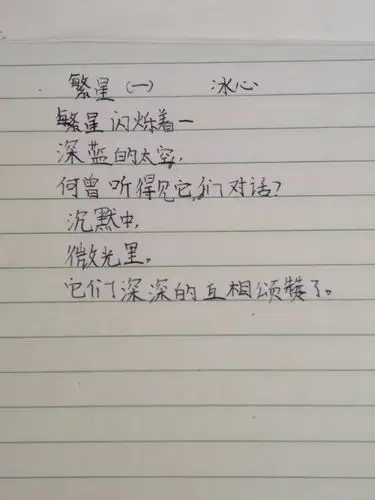 繁星（一） 冰心
繁星闪烁着一
深蓝的太空，
何曾听得见它们对话？
沉默中，
微光里。
它们深深的互相颂赞了。